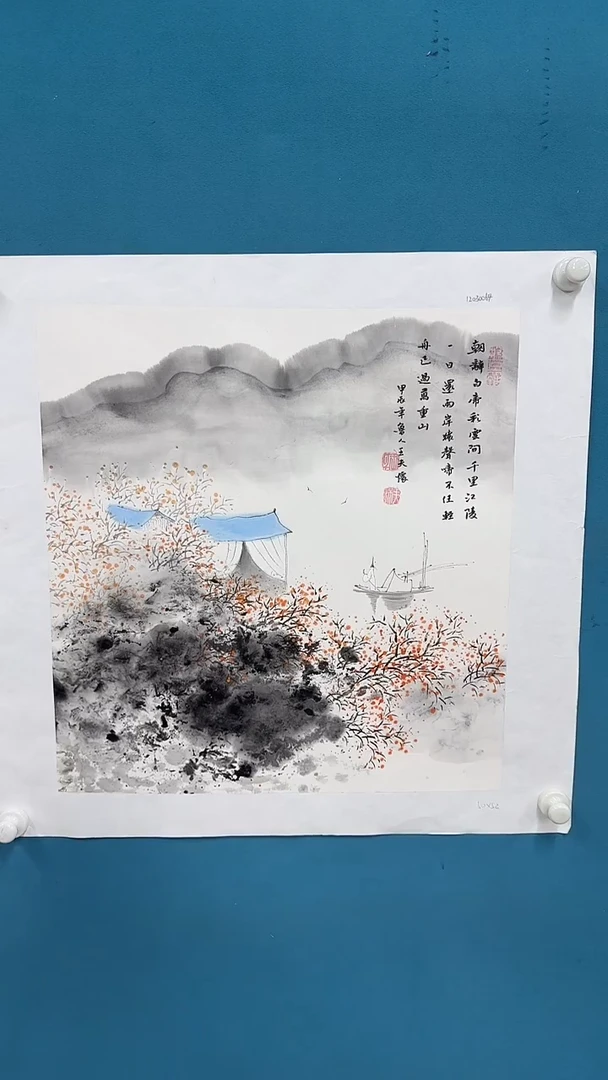 朝辭白帝彩雲间千里江陵
一日還两岸猿聲啼不住輕
舟已過萬重山
甲辰年魯人王天